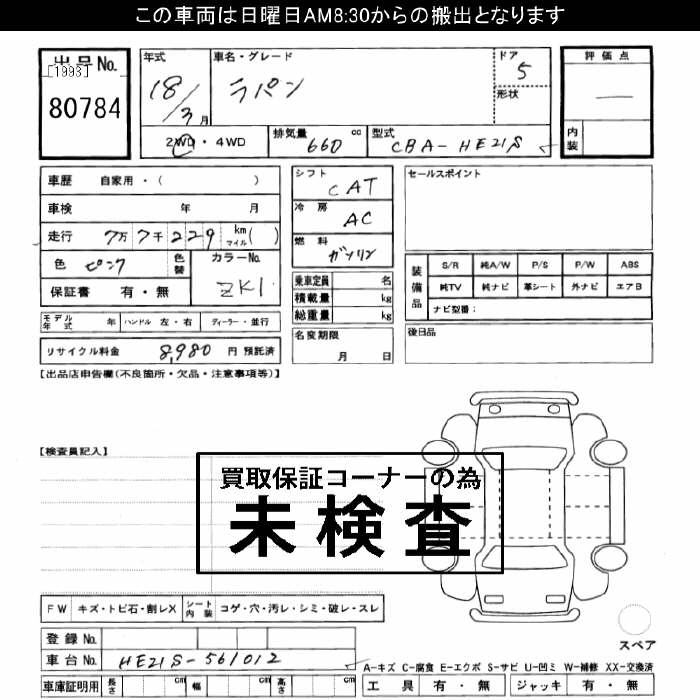 この車両は日曜日AM8:30からの搬出となります
出品No.
[1993]
80784
年式
18/3月
車名・グレード
ラパン
ドア
5
形状
評価点
—
内装
2WD・4WD
排気量 660 cc
型式 CBA-HE21S
車歴 自家用・( )
車検 年 月
走行 7万7千229 km マイル( )
色 ピンク 色替
カラーNo. ZK1
保証書 有・無
モデル年式 年 ハンドル 左・右 ディーラー・並行
リサイクル料金 8,980 円 預託済
シフト CAT
冷房 AC
燃料 ガソリン
乗車定員 名
積載量 kg
総重量 kg
名変期限
月 日
セールスポイント
装備品
S/R 純A/W P/S P/W ABS
純TV 純ナビ 革シート 外ナビ エアB
ナビ型番:
後日品
【出品店申告欄(不良箇所・欠品・注意事項等)】
【検査員記入】
買取保証コーナーの為
未検査
FW キズ・トビ石・割レX シート内装 コゲ・穴・汚レ・シミ・破レ・スレ
登録No.
車台No. HE21S-561012
車庫証明用 長さ cm 幅 cm 高さ cm
スペア
A-キズ C-腐食 E-エクボ S-サビ U-凹ミ W-補修 XX-交換済
工具 有・無 ジャッキ 有・無